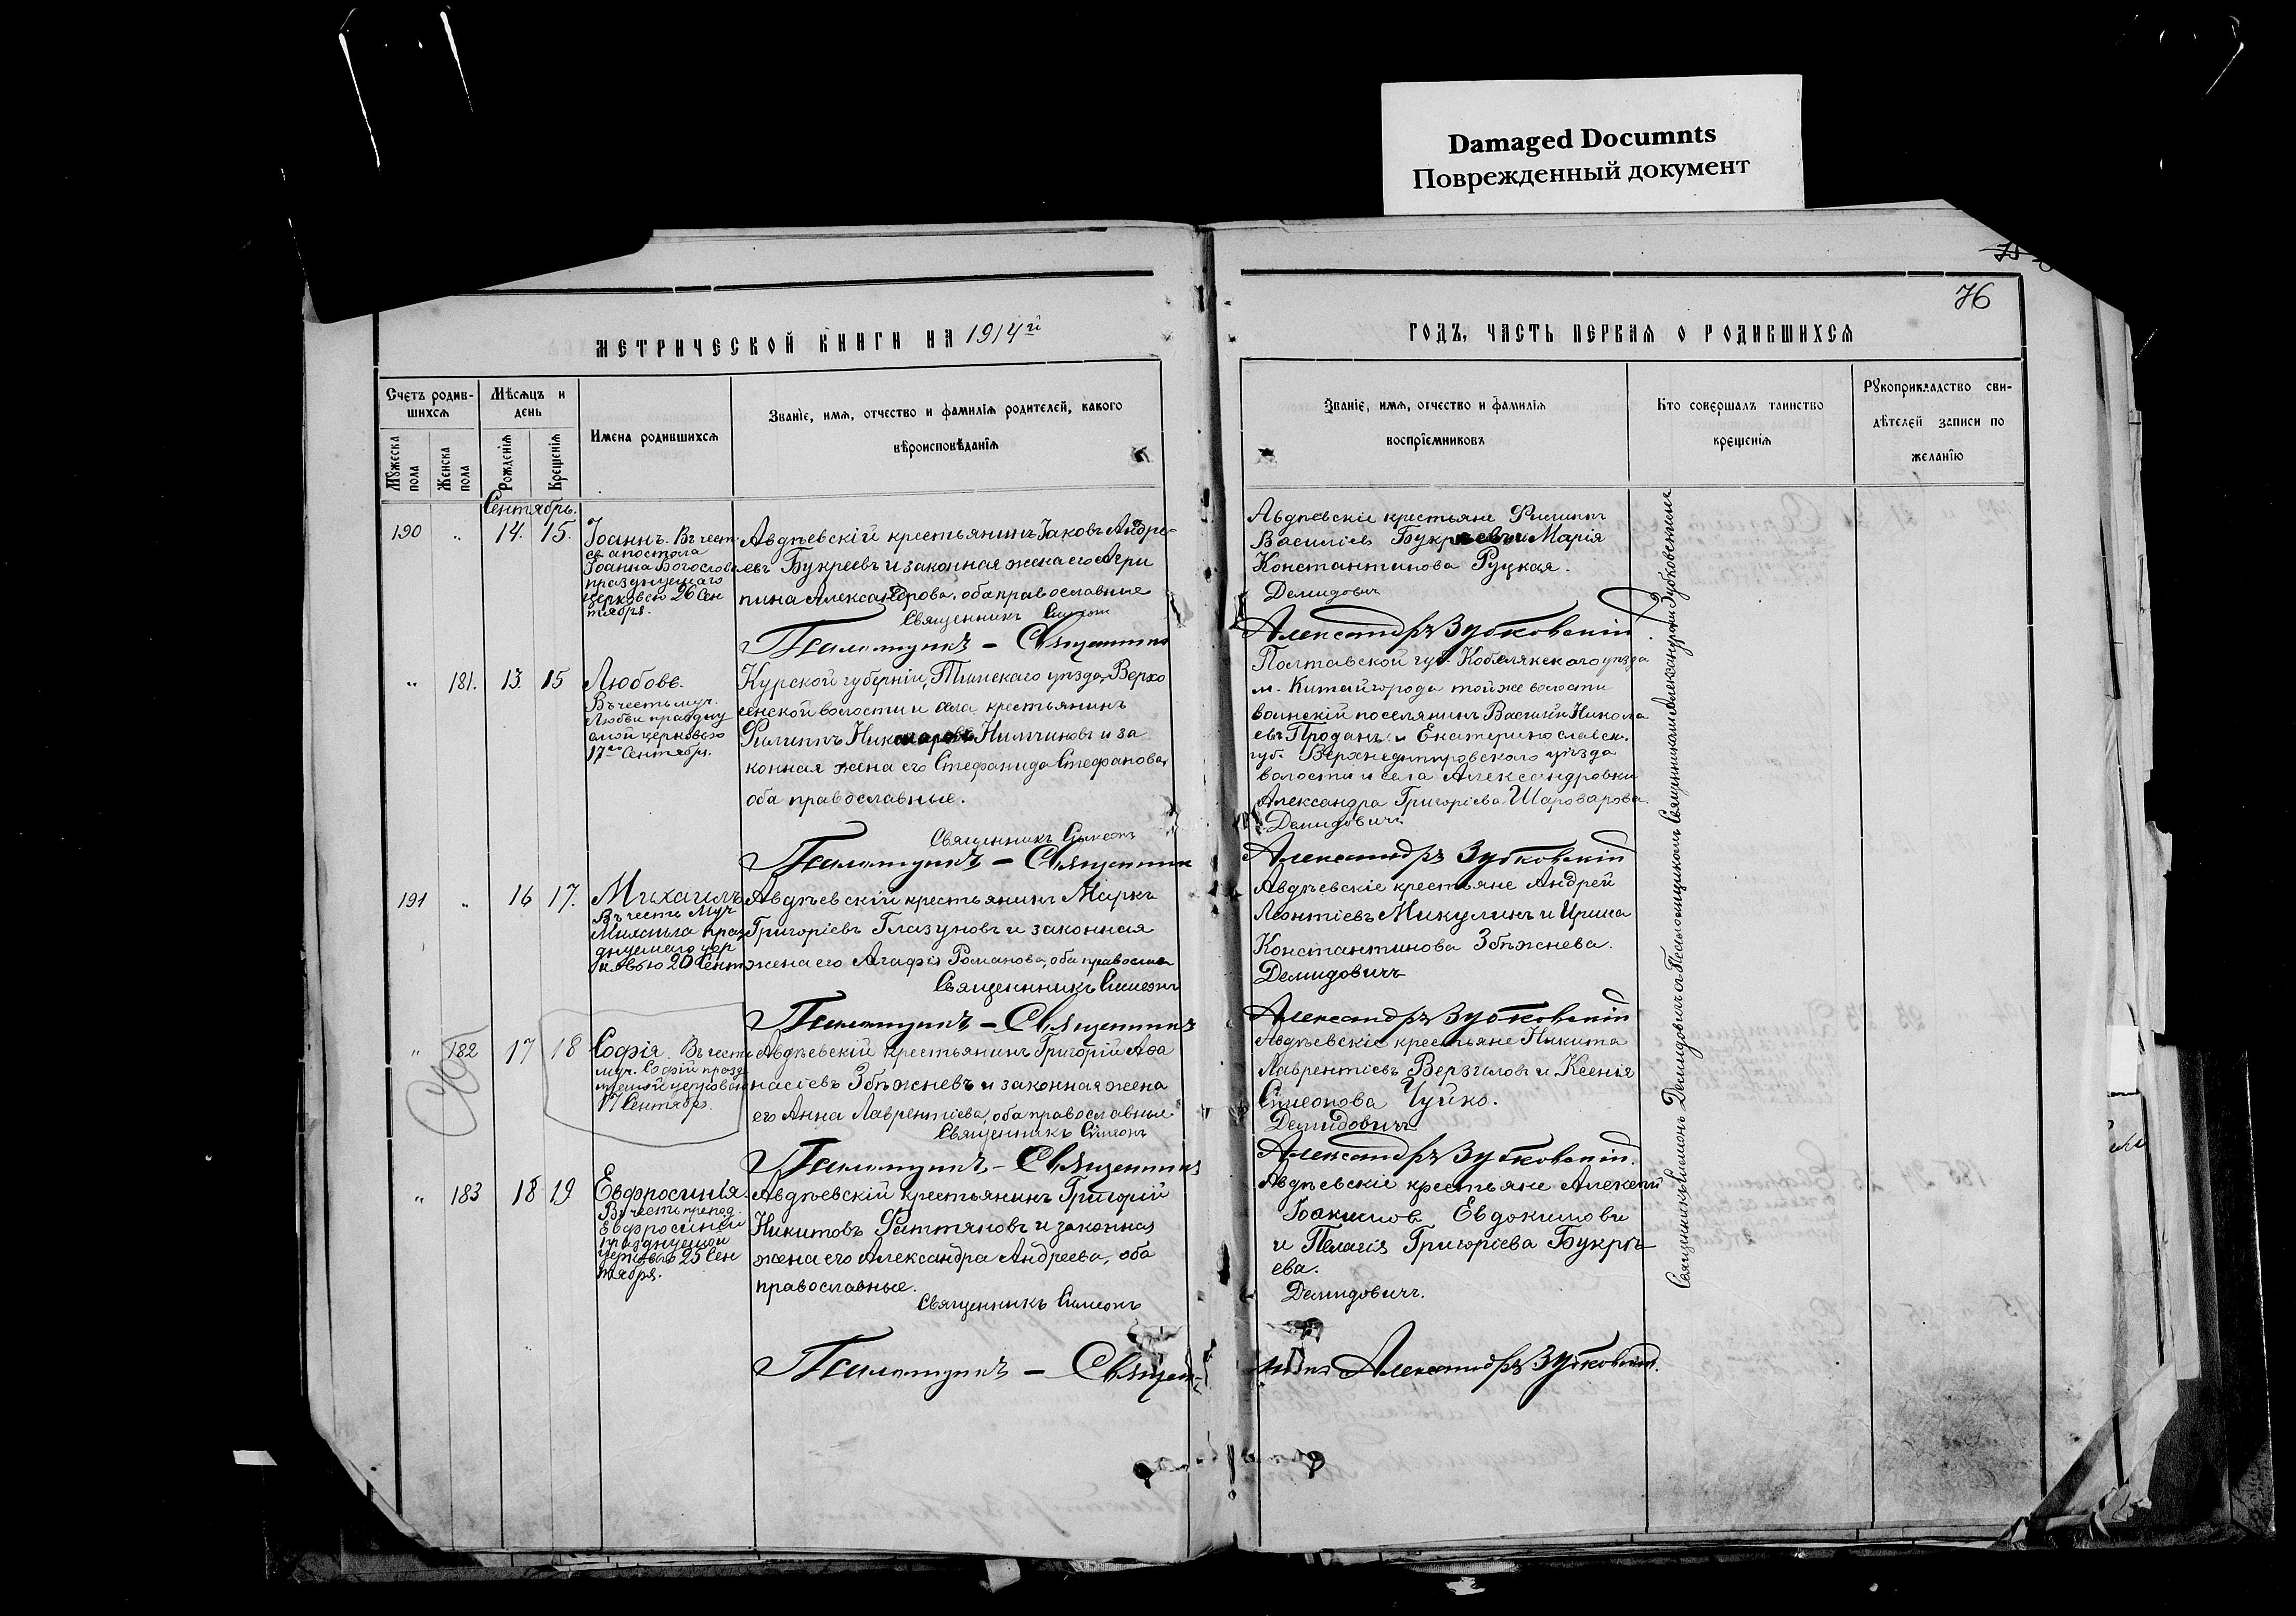 Damaged Documnts
Поврежденный документ
76
МЕТРИЧЕСКОЙ КНИГИ НА 1914й
ГОДЪ, ЧАСТЬ ПЕРВАЯ О РОДИВШИХСЯ
Счетъ родив-
шихся
Мужеска пола
Женска пола
Мѣсяцъ и
день
Рожденія
Крещенія
Имена родившихся
Званіе, имя, отчество и фамилія родителей, какого
вѣроисповѣданія
Званіе, имя, отчество и фамилія
воспріемниковъ
Кто совершалъ таинство
крещенія
Рукоприкладство сви-
дѣтелей записи по
желанію
Сентябрь.
190 " 14. 15.
Іоаннъ. Въ честь
св апостола
Іоанна Богослова
празднуемаго
церковью 26 Сен
тября.
Авдѣевскій крестьянинъ Іаковъ Андре-
евъ Букреевъ и законная жена его Агри
пина Александрова, оба православные
Священникъ Симеонъ
Псаломщикъ – Священникъ
Авдѣевскіе крестьяне Филиппъ
Василіевъ Букрѣевъ и Марія
Константинова Руцкая.
Демидовичъ
Александръ Зубковскій
" 181. 13. 15
Любовь.
Въ честь муч.
Любви праздну
емой церковью
17го Сентября.
Курской губерніи, Тимскаго уѣзда, Верхо
сенской волости и села крестьянинъ
Филиппъ Нимчиновъ и за
конная жена его Стефанида Стефанова,
оба православные.
Священникъ Симеонъ
Псаломщикъ – Священникъ
Полтавской губ. Кобелякскаго уѣзда
м. Китайгорода той же волости
воинскій поселянинъ Василій Никола
евъ Проданъ и Екатеринославск.
губ. Верхнеднѣпровскаго уѣзда
волости и села Александровки
Александра Григоріева Шароварова.
Демидовичъ
Александръ Зубковскій
191 " 16 17.
Михаилъ
Въ честь муч
Михаила праз
днуемаго цер
ковью 20 Сент
Авдѣевскій крестьянинъ Маркъ
Григоріевъ Глазуновъ и законная
жена его Агафія Романова, оба православн
Священникъ Симеонъ
Псаломщикъ – Священникъ
Авдѣевскіе крестьяне Андрей
Леонтіевъ Микулинъ и Ирина
Константинова Збѣжнева.
Демидовичъ
Александръ Зубковскій
" 182 17 18
Софія. Въ честь
муч. Софіи празд
нуемой церковью
17 Сентября.
Авдѣевскій крестьянинъ Григорій Аѳа
насіевъ Збѣжневъ и законная жена
его Анна Лаврентіева, оба православные
Священникъ Симеонъ
Псаломщикъ – Священникъ
Авдѣевскіе крестьяне Никита
Лаврентіевъ Верзиловъ и Ксенія
Симеонова Чуйко.
Демидовичъ
Александръ Зубковскій.
" 183 18 19
Евфросинія.
Въ честь препод.
Евфросиніи
празднуемой
церковью 25 Сен
тября.
Авдѣевскій крестьянинъ Григорій
Никитовъ и законная
жена его Александра Андреева, оба
православные.
Священникъ Симеонъ
Псаломщикъ – Священ-
Авдѣевскіе крестьяне Алексѣй
Іоакимовъ Евдокимовъ
и Пелагія Григоріева Букрѣ-
ева.
Демидовичъ.
никъ Александръ Зубковскій.
Священникъ Симеонъ Демидовичъ съ Псаломщикомъ Священникомъ Александромъ Зубковскимъ